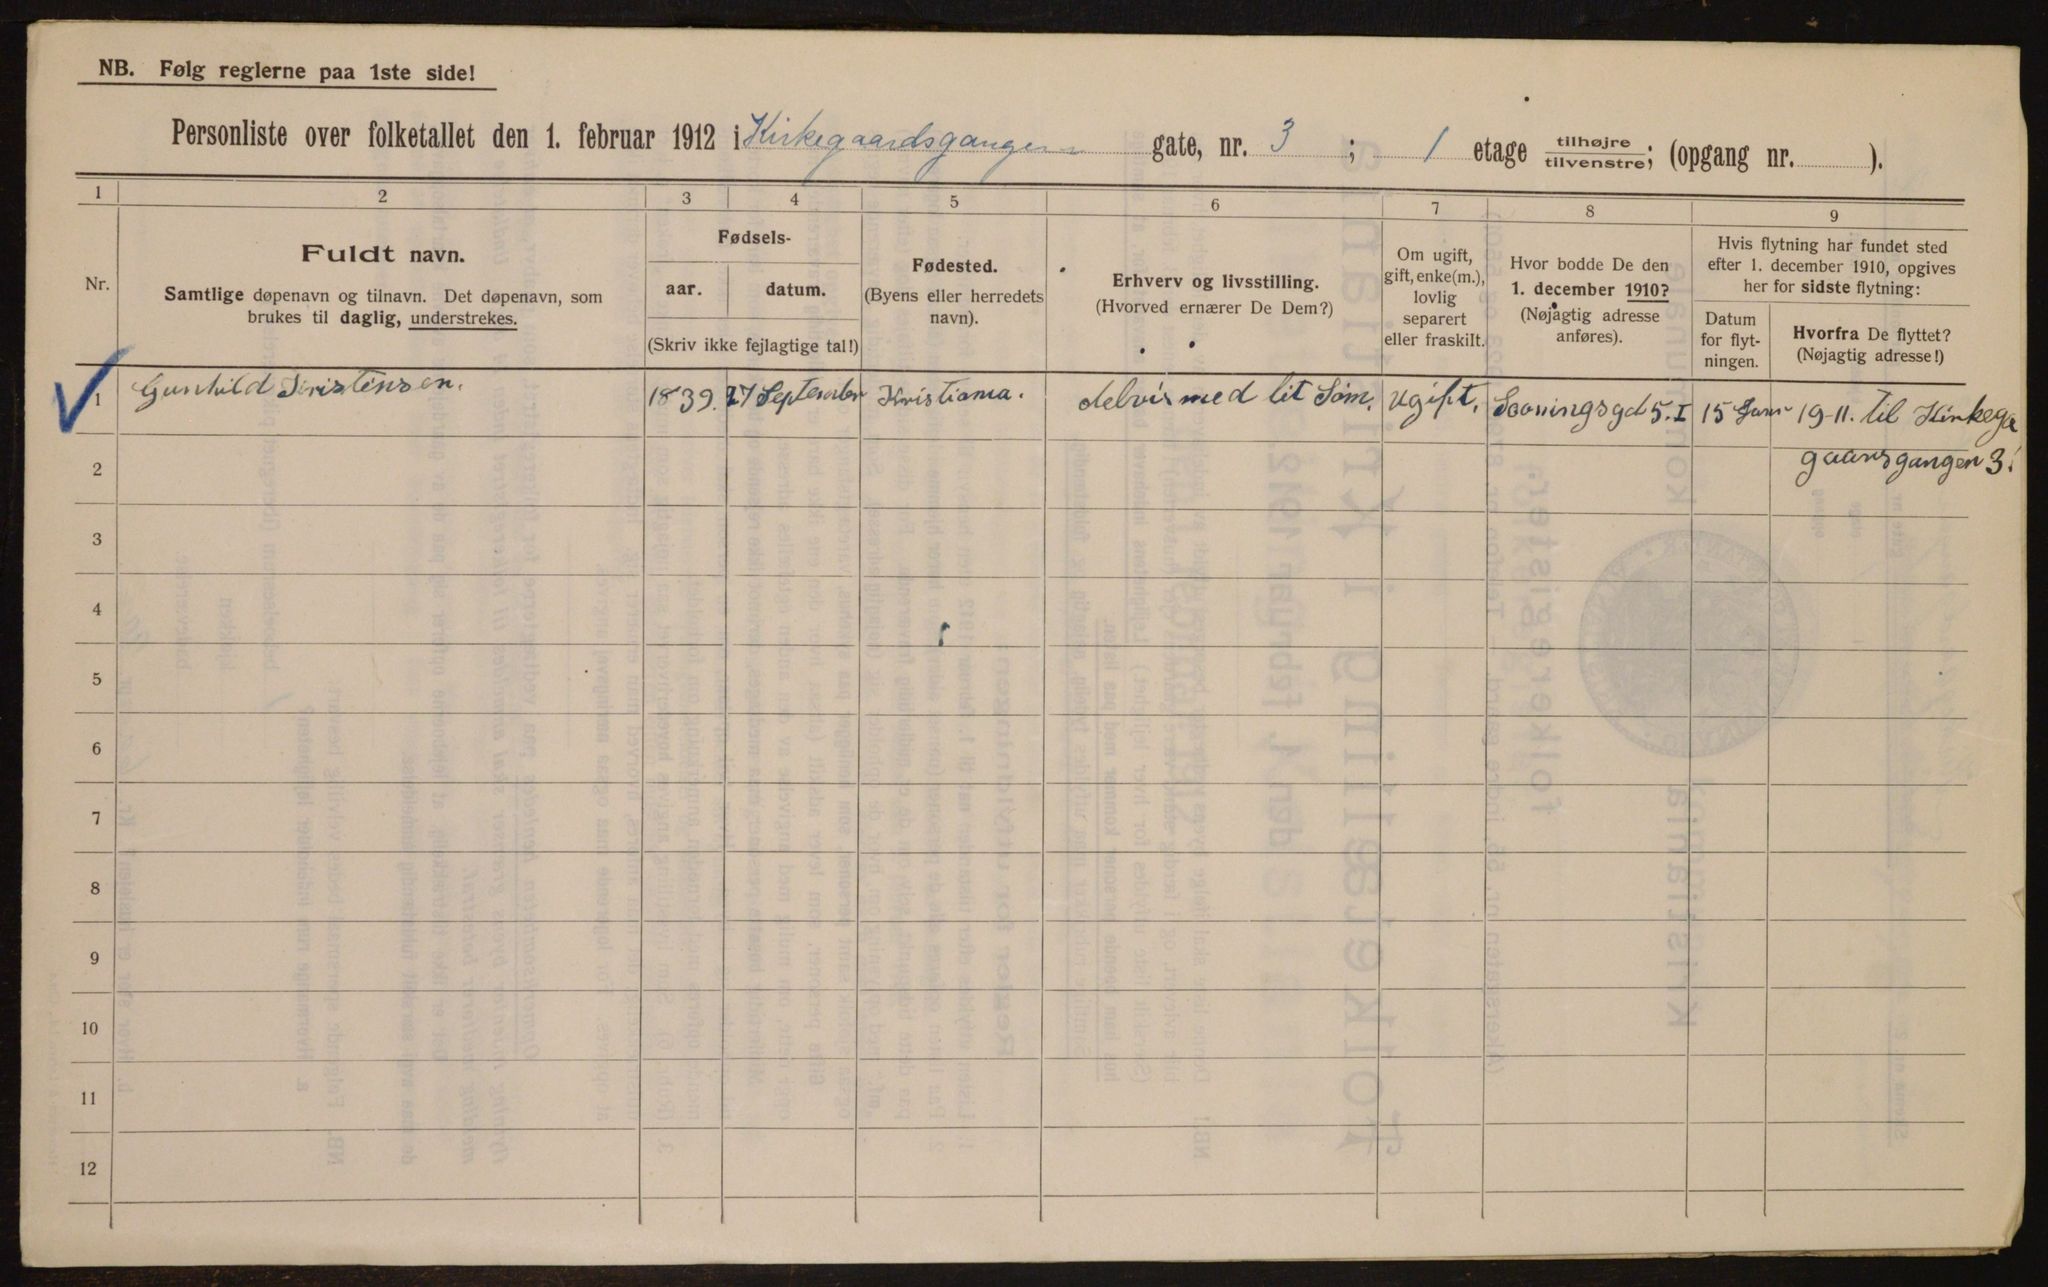 NB. Følg reglerne paa 1ste side!
Personliste over folketallet den 1. februar 1912 i Kirkegaardsgangen gate, nr. 3 ; 1 etage tilhøjre tilvenstre; (opgang nr. ).
1 2 3 4 5 6 7 8 9
Nr.
Fuldt navn.
Samtlige døpenavn og tilnavn. Det døpenavn, som
brukes til daglig, understrekes.
Fødsels-
aar. datum.
(Skriv ikke fejlagtige tal!)
Fødested.
(Byens eller herredets
navn).
Erhverv og livsstilling.
(Hvorved ernærer De Dem?)
Om ugift,
gift, enke(m.),
lovlig
separert
eller fraskilt.
Hvor bodde De den
1. december 1910?
(Nøjagtig adresse
anføres).
Hvis flytning har fundet sted
efter 1. december 1910, opgives
her for sidste flytning:
Datum
for flyt-
ningen.
Hvorfra De flyttet?
(Nøjagtig adresse!)
1 Gunhild Kristensen. 1839. 27 September Kristiania. delvis med lit Søm. Ugift. 5. I 15 Jan 19-11. til Kirkega
2 gaarsgangen 3.
3
4
5
6
7
8
9
10
11
12